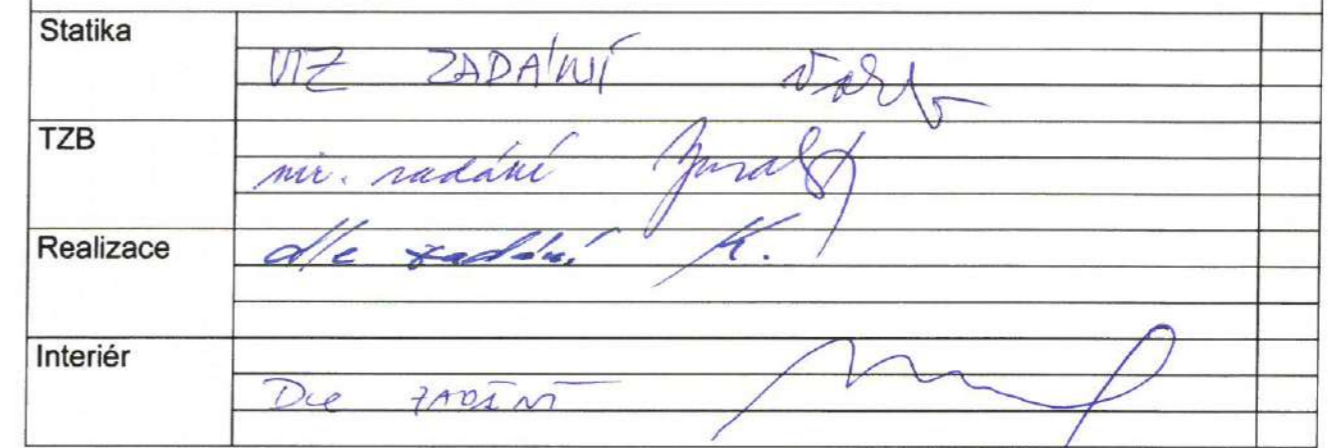 Statika
VIZ ZADÁNÍ
TZB
viz. zadání
Realizace
dle zadání K.
Interiér
DLE ZADÁNÍ